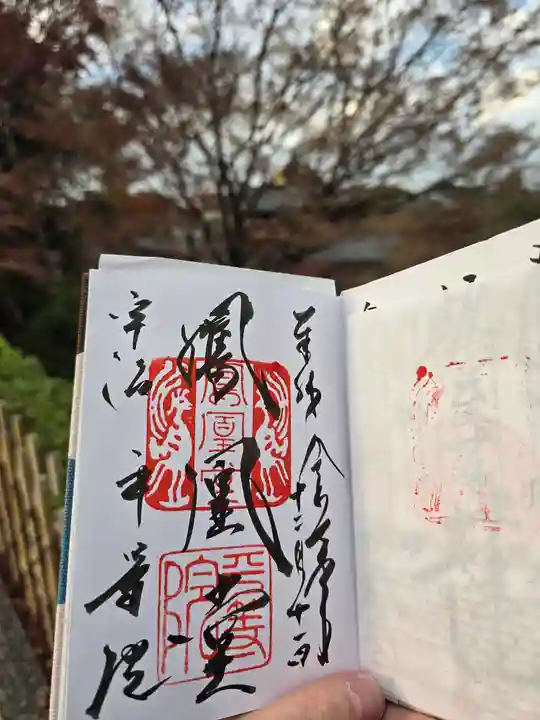 奉拝
令和六年
十二月十一日
鳳凰堂
鳳凰堂
平等院
宇治
平等院